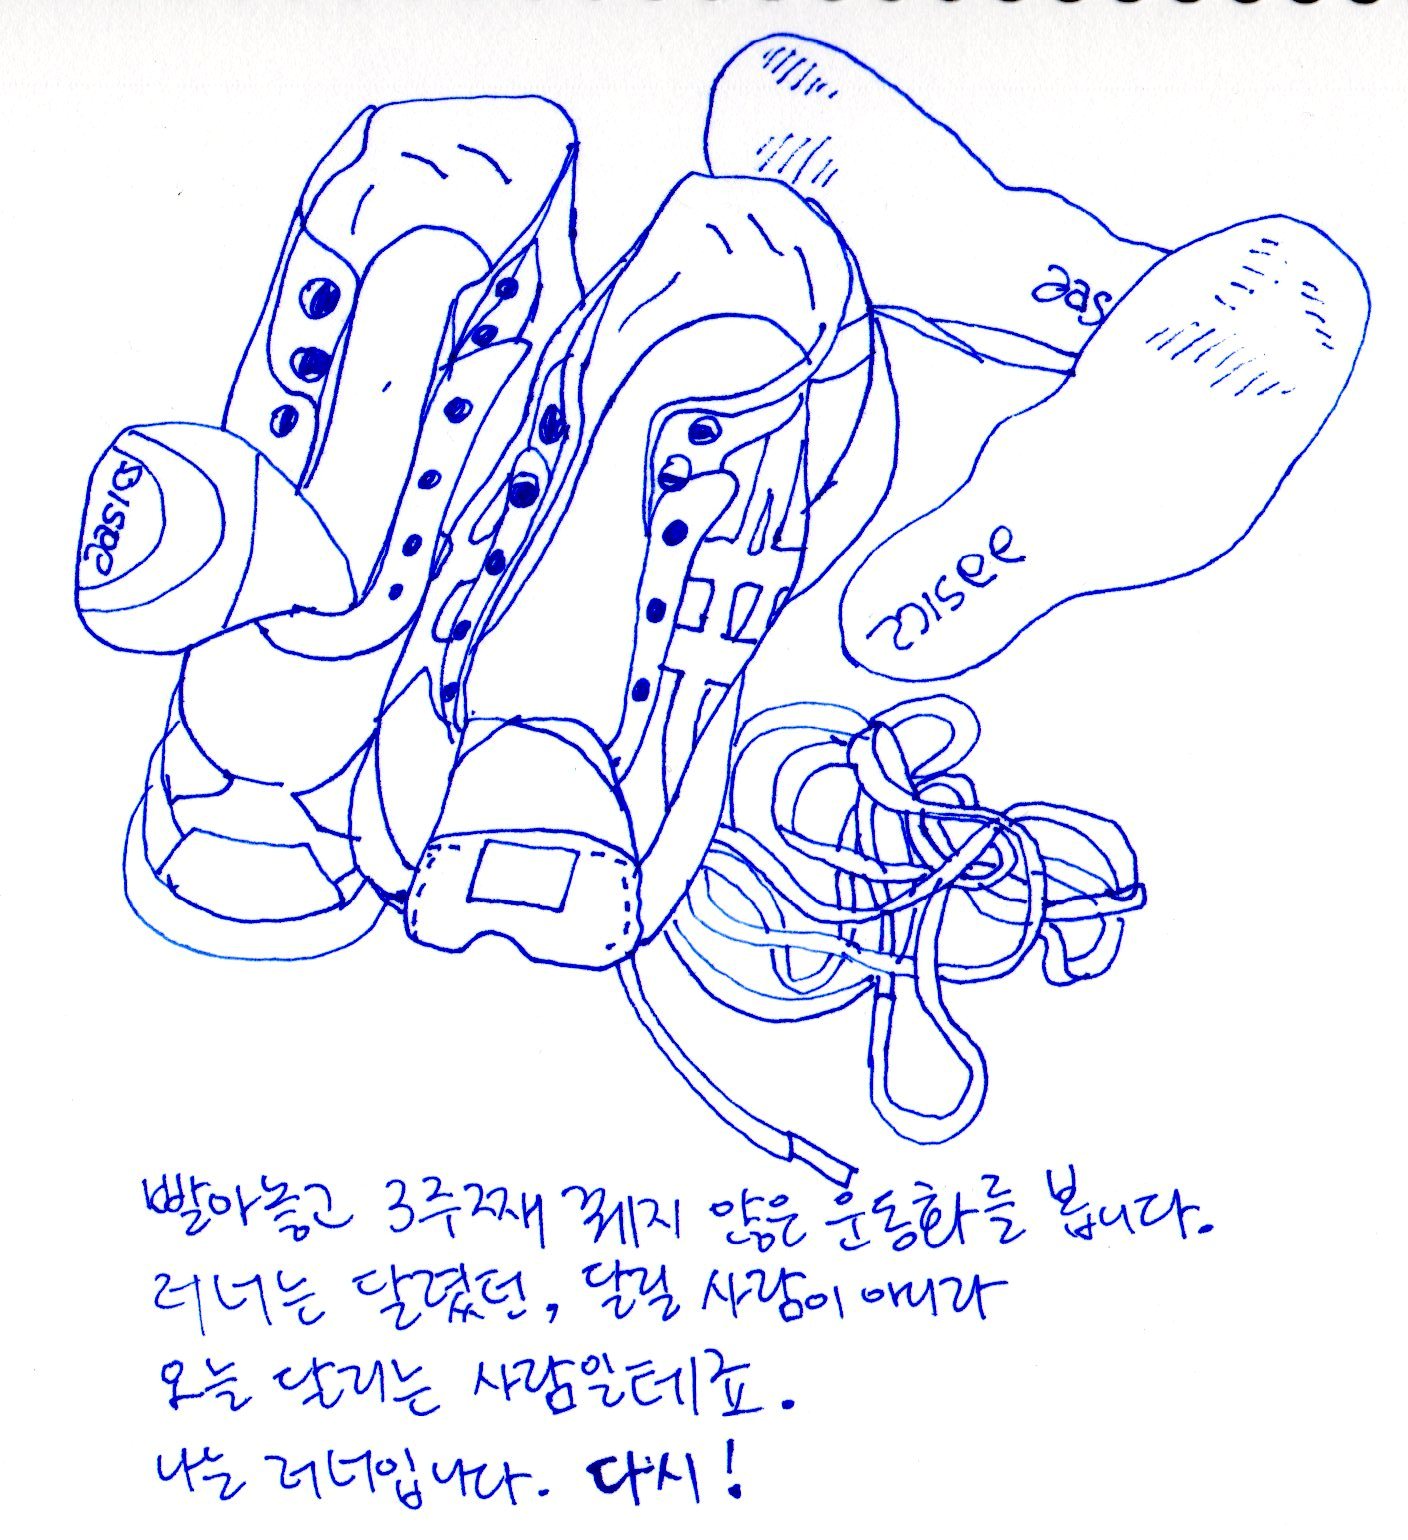 aas
aasicc
빨아놓고 3주째 꿰지 않은 운동화를 봅니다.
러너는 달렸던, 달릴 사람이 아니라
오늘 달리는 사람일테죠.
나는 러너입니다. 다시!